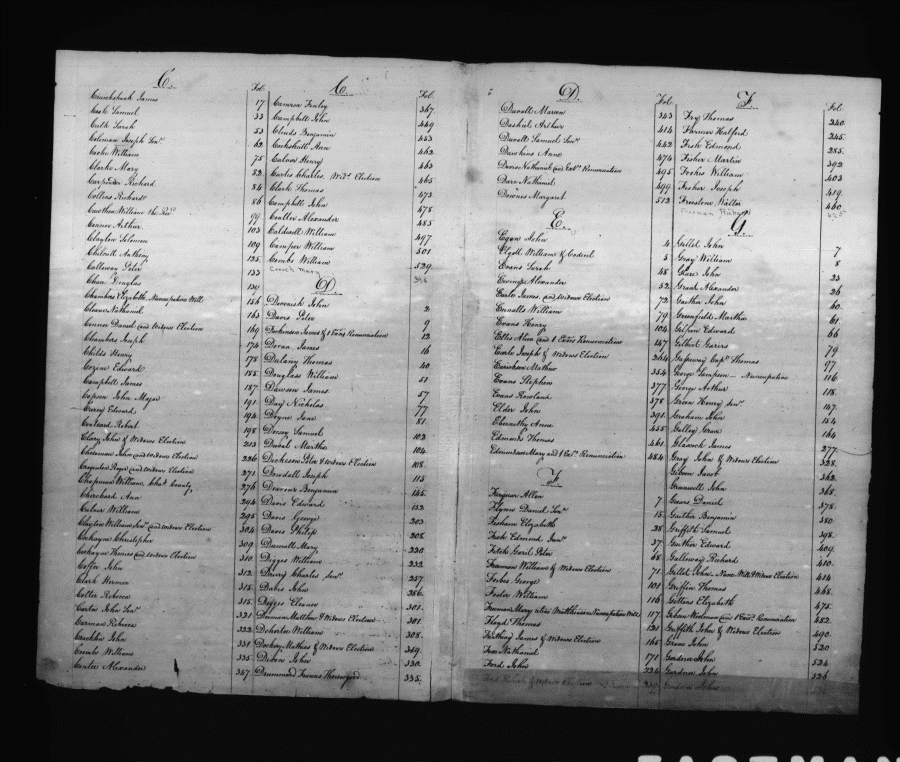 C.
Fol.
Cruickshank James 17
Cook Samuel 33
Cutk Sarah 53
Coleman Joseph Senr. 62
Caslin William 75
Clarke Mary 82
Carpender Richard 84
Collins Richard 86
Cawthon William the Revd. 99
Connor Arthur 103
Clayton Solomon 109
Chetwitt Anthony 125
Calloway Peter 133
Chun Douglas 139
Chambers Elizabeth Nuncupative Will 156
Cleaver Nathaniel 163
Connor Daniel and Widows Election 169
Chambers Joseph 174
Childs Henry 178
Cozine Edward 185
Campbell James 187
Capron John Major 191
Carey Edward 194
Couteard Robert 198
Clary John & Widows Election 213
Cheeseman John and Widows Election 226
Carpenter Roger and Widows Election 271
Chapman William, Chas. County 276
Cherchard Ann 294
Culver William 295
Clayton William Senr. and Widows Election 304
Cockayne Christopher 309
Cockayne Thomas and Widows Election 310
Coffer John 312
Clark Herman 315
Colter Rebecca 315
Carter John Senr. 321
Carman Rebecca 322
Caucklin John 331
Combs William 335
Coulter Alexander 347
C.
Fol.
Camron Finley 367
Campbell John 449
Clouds Benjamin 453
Cockshutt Ann 462
Calvert Henry 463
Carter Charles, Widw. Election 465
Clark Thomas 473
Campbell John 478
Coulter Alexander 485
Caldwell William 497
Camper William 501
Combs William 529
Couch Mary 396
D
Devenish John 2
Davis Peter 9
Dickinson James & 1 Exors Renunciation 12
Devan James 16
Dulany Thomas 40
Douglass William 51
Dawson James 57
Day Nicholas 77
Doyne Jane 81
Dewey Samuel 102
Duvall Martha 104
Dickeson Peter & Widows Election 108
Dowdell Joseph 115
Deavour Benjamin 145
Davis Edward 152
Davis George 203
Davis Philip 208
Darnall Mary 220
Digges William 232
Drury Charles Senr. 257
Davis John 286
Digges Eleanor 301
Dorman Matthew & Widows Election 301
Doherton William 308
Dockery Mathias & Widows Election 319
Debon John 330
Drummond Francis Thoroughgood 335
D.
Fol.
Duvall Maren 343
Dashiel Arthur 414
Duvall Samuel Senr. 442
Dawkins Anne 474
Davis Nathaniel and Exrs. Renunciation 495
Dare Nathaniel 499
Downes Margaret 512
E.
Egan John 4
Elgall William & Codicil 5
Evans Sarah 48
Ewings Alexander 52
Earle James and Widows Election 72
Ennalls William 79
Evans Henry 104
Ellis Alice and 1 Exors Renunciation 147
Earle Joseph & Widows Election 264
Erickson Mathew 354
Evans Stephen 377
Evans Rowland 378
Elder John 391
Ebernathy Anne 455
Edmonds Thomas 461
Edmondson Mary and 1 Exrs. Renunciation 484
F
Ferguson Allen 7
Flynn Daniel Senr. 15
Fesham Elizabeth 28
Fish Edmond Junr. 37
Fitch Gard Peter 68
Freeman William & Widows Election 71
Forbes George 101
Foster William 116
Freeman Mary alias Nuncupative Will 117
Floyd Thomas 121
Fottrell James & Widows Election 165
Fox Nathaniel 171
Ford John 234
F.
Fol.
Fry Thomas 240
Farmer Halford 245
Fish Edmond 285
Fisher Martin 392
Forbes William 403
Fisher Joseph 419
Freestone Walter 460
Freeman Richard 425
G.
Gillet John 7
Gray William 8
Ghare John 23
Grant Alexander 26
Gaither John 60
Greenfield Martha 61
Gilpin Edward 66
Gilbert Garvis 79
Galloway Capt. Thomas 97
George Simpson - Nuncupative 116
George Arthur 118
Green Henry Senr. 147
Graham John 154
Gulley Jane 164
Gladwick James 277
Gray John & Widows Election 328
Gibson Jacob 362
Granwell John 368
Geaves Daniel 378
Gaither Benjamin 380
Griffith Samuel 398
Gaither Edward 409
Galloway Richard 410
Gillet John, Nunc. Will & Widows Election 414
Griffin Thomas 468
Gittens Elizabeth 475
Gibson Woodman and 1 Exors. Renunciation 482
Griffith John & Widows Election 490
Green John 520
Gardener John 524
Gardner John 526
EASTMAN